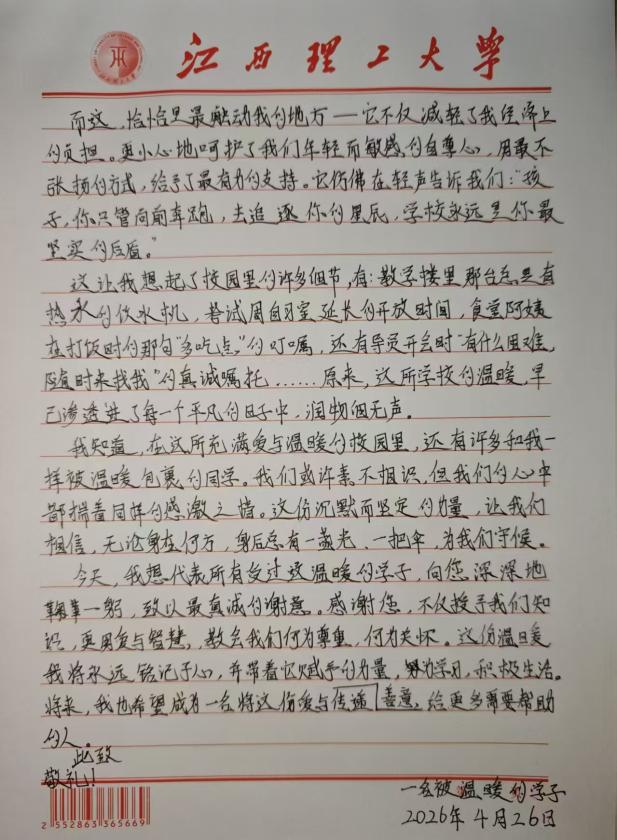 江西理工大学
而这,恰恰是最触动我的地方——它不仅减轻了我经济上
的负担。更小心地呵护了我们年轻而敏感的自尊心,用最不
张扬的方式,给予了最有力的支持。它仿佛在轻声告诉我们:“孩
子,你只管向前奔跑,去追逐你的星辰,学校永远是你最
坚实的后盾。”
这让我想起了校园里的许多细节,有:教学楼里那台总是有
热水的饮水机,考试周自习室延长的开放时间,食堂阿姨
在打饭时的那句“多吃点”的叮嘱,还有导员开会时“有什么困难,
随时来找我”的真诚嘱托......原来,这所学校的温暖,早
已渗透进了每一个平凡的日子中,润物细无声。
我知道,在这所充满爱与温暖的校园里,还有许多和我一
样被温暖包裹的同学。我们或许素不相识,但我们的心中
都揣着同样的感激之情。这份沉默而坚定的力量,让我们
相信,无论身在何方,身后总有一盏光、一把伞,为我们守候。
今天,我想代表所有受过这温暖的学子,向您深深地
鞠一躬,致以最真诚的谢意。感谢您,不仅授予我们知
识,更用爱与智慧,教会我们何为尊重,何为关怀。这份温暖
我将永远铭记于心,并带着它赋予的力量,努力学习,积极生活。
将来,我也希望成为一名将这份爱与传递善意,给更多需要帮助
的人。
此致
敬礼!
一名被温暖的学子
2026年4月26日
2 552863 365669